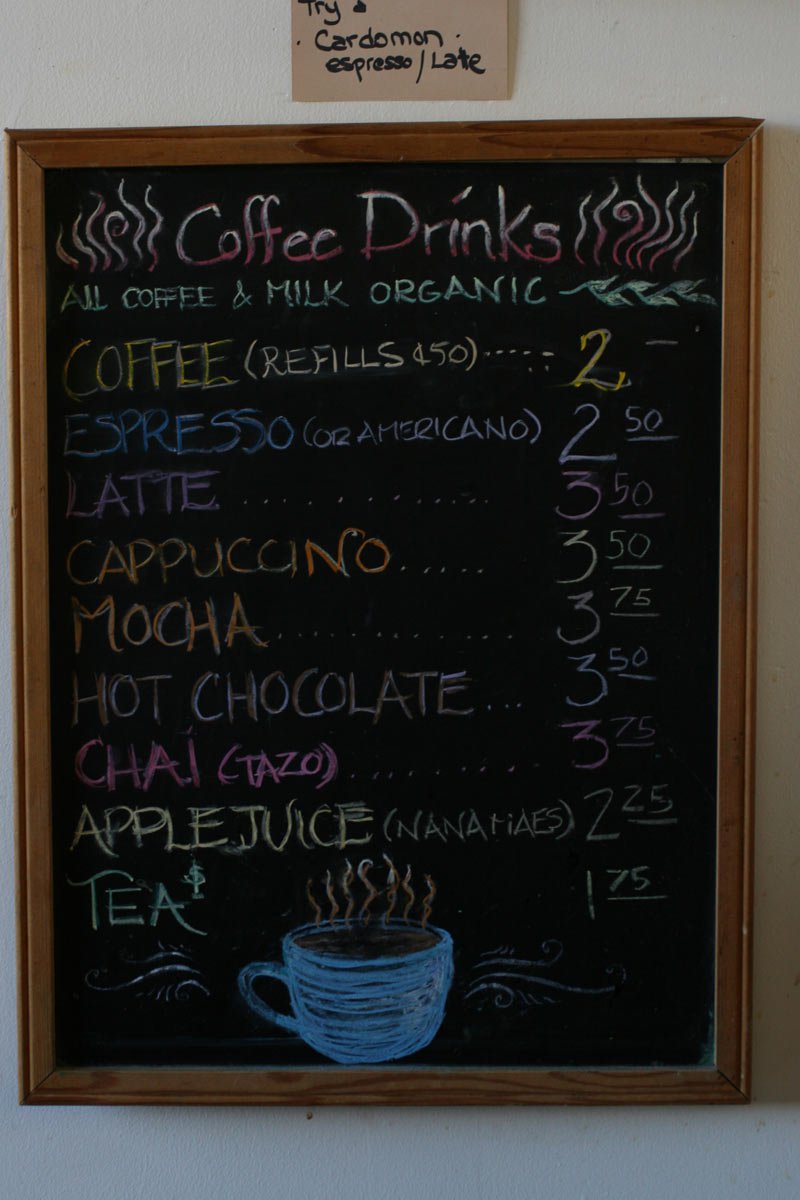 Try a
· Cardomon ·
espresso/Latte
Coffee Drinks
ALL COFFEE & MILK ORGANIC
COFFEE (REFILLS ¢50) ······ 2 —
ESPRESSO (OR AMERICANO) 2 50
LATTE .............. 3 50
CAPPUCCINO ...... 3 50
MOCHA .............. 3 75
HOT CHOCOLATE ... 3 50
CHAI (TAZO) ........... 3 75
APPLE JUICE (NANA MAES) 2 25
TEA $ 1 75